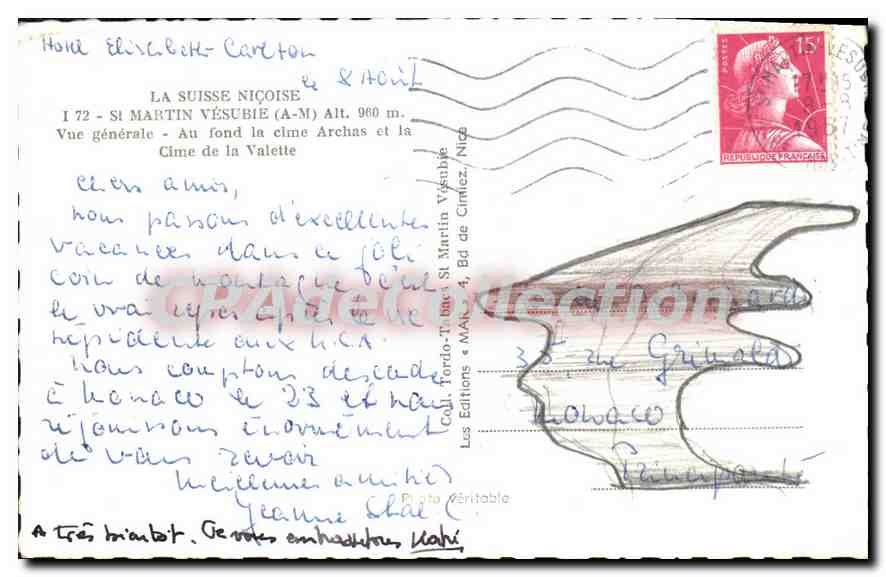 Hotel Elisabeth-Carlton
le 8 Août
LA SUISSE NIÇOISE
I 72 - St MARTIN VÉSUBIE (A-M) Alt. 960 m.
Vue générale - Au fond la cime Archas et la
Cime de la Valette
Chers amis,
nous passons d'excellentes
vacances dans ce joli
coin de montagne. C'est
le vrai repos après la vie
trépidante aux U.S.A.
Nous comptons descendre
à Monaco le 23 et nous
réjouissons énormément
de vous revoir
Meilleures amitiés
Jeanne
A très bientôt. Je vous embrasse tous
Coll. Tordo-Tabacs St Martin Vésubie
Les Editions « MAR 4, Bd de Cimiez, Nice
Photo Véritable
POSTES
15F
REPUBLIQUE FRANÇAISE
VESUBIE
35 rue Grimaldi
Monaco
Principauté
CPADeCollection.com